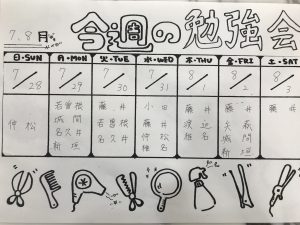 7.8月 今週の勉強会
日・SUN 月・MON 火・TUE 水・WED 木・THU 金・FRI 土・SAT
7/28 7/29 7/30 7/31 8/1 8/2 8/3
仲松 若曽根 藤井 小田 藤井 藤井 藤井
城間 若曽根 藤井 渡辺 矢萩
名久井 名久井 仲松 椎名 城間
新垣 椎名 新垣